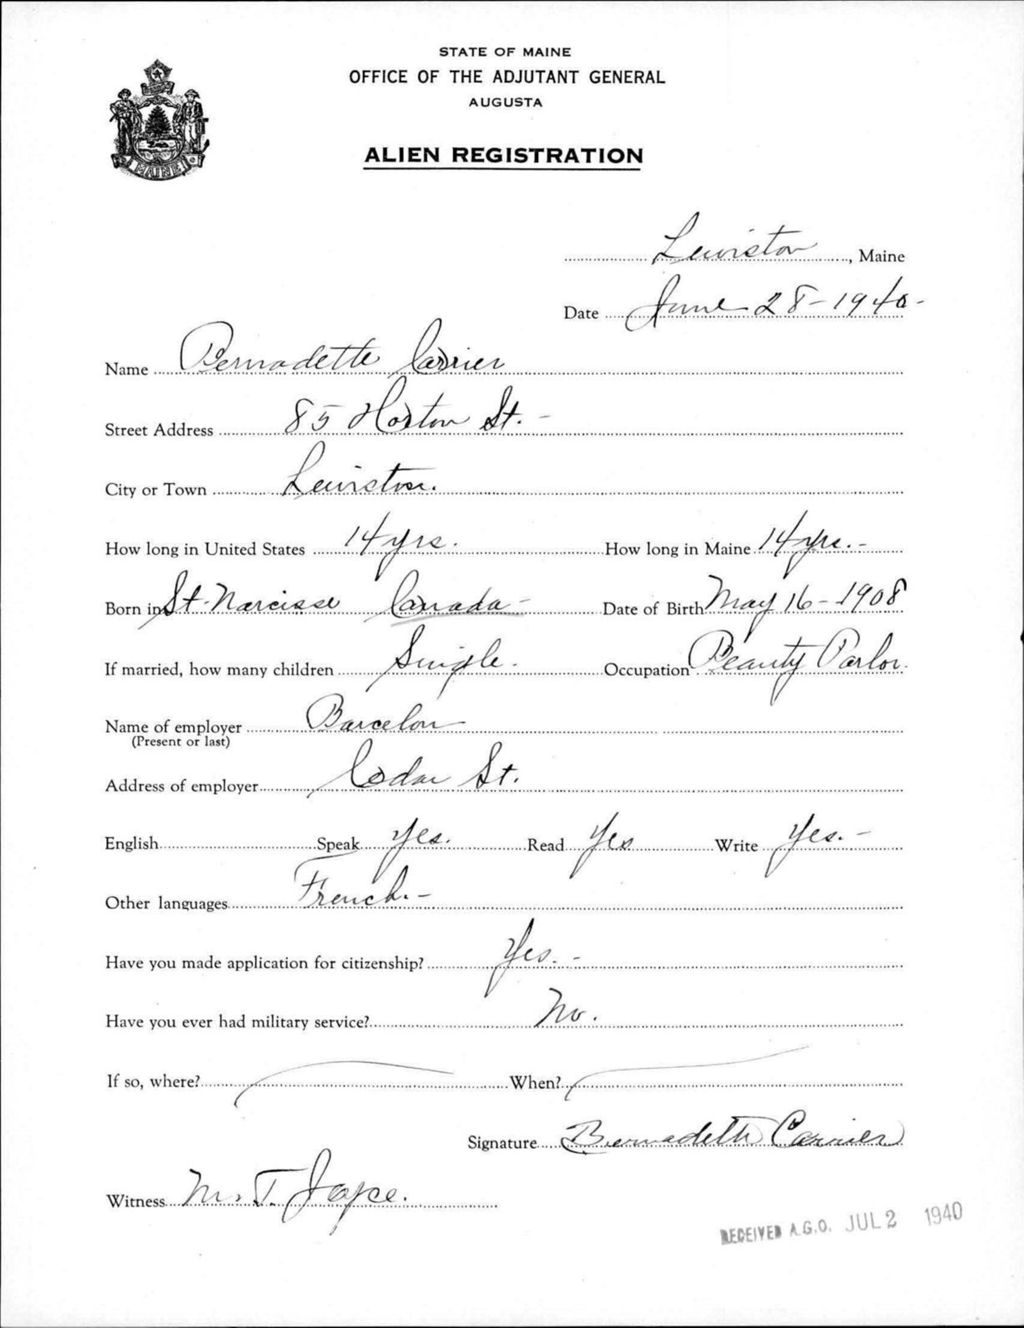 STATE OF MAINE
OFFICE OF THE ADJUTANT GENERAL
AUGUSTA
ALIEN REGISTRATION
MAINE
Lewiston, Maine
Date June 28-1940-
Name Bernadette Carrier
Street Address 85 Horton St. -
City or Town Lewiston.
How long in United States 14 yrs. How long in Maine 14 yrs. -
Born in St. Narcisse Canada - Date of Birth May 16-1908
If married, how many children Single. Occupation Beauty Parlor.
Name of employer Barcelou
(Present or last)
Address of employer Cedar St.
English Speak Yes. Read Yes Write Yes. -
Other languages French. -
Have you made application for citizenship? Yes. -
Have you ever had military service? No.
If so, where? When?
Signature Bernadette Carrier
Witness M. T. Joyce.
RECEIVED A.G.O. JUL 2 1940